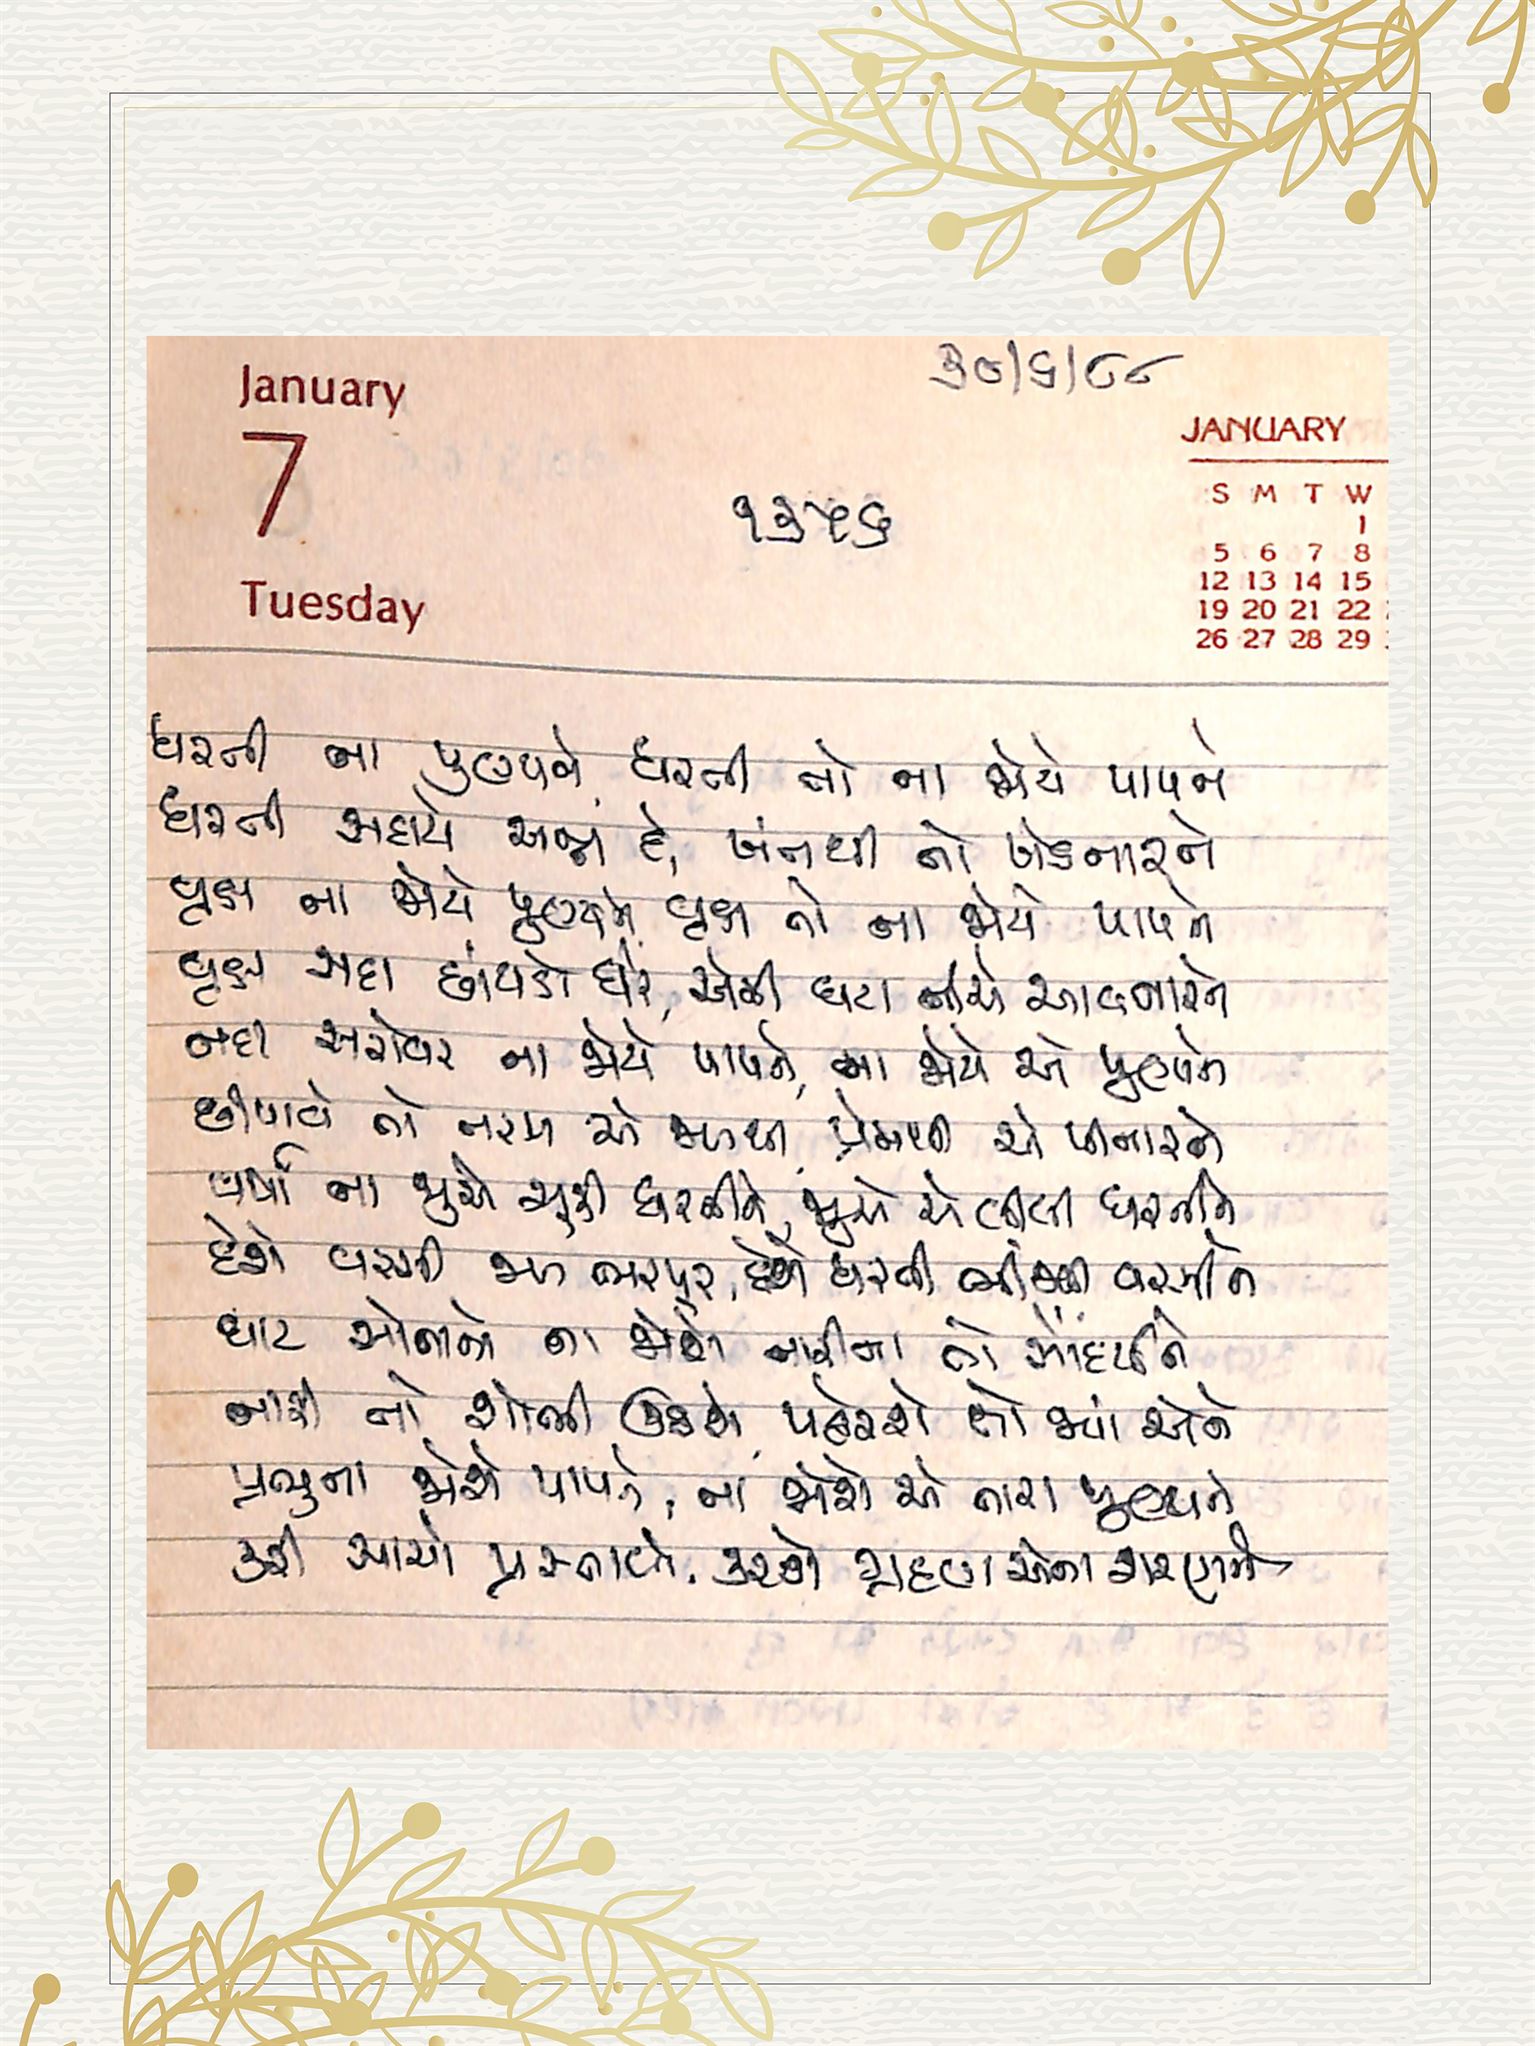 January
7
Tuesday
૩૦/૬/૮૮
૧૩૫૬
JANUARY
S M T W
1
5 6 7 8
12 13 14 15
19 20 21 22
26 27 28 29
ધરતી ના પુણ્યને, ધરતી તો ના જોયે પાપને
ધરતી સદાયે અન્ન દે, ખંતથી તો ખેડનારને
વૃક્ષ ના જોયે પુણ્યને, વૃક્ષ તો ના જોયે પાપને
વૃક્ષ સદા છાંયડો ધરે, એની ઘટા નીચે આવનારને
નદી સરોવર ના જોયે પાપને, ના જોયે એ પુણ્યને
છીપાવે તો તરસ એ જળથી, પ્રેમથી એ પીનારને
વર્ષા ના જુએ સૂકી ધરતીને, જુએ ના એ લીલી ધરતીને
દેશે વરસી જળ ભરપૂર, દેશે ધરતી ભીંજવી વરસીને
ઘાટ સોનાનો ના જોશે નારીના તો સૌંદર્યને
નારી તો શોભી ઊઠશે, પહેરશે તો જ્યાં એને
પ્રભુ ના જોશે પાપને, ના જોશે એ તારા પુણ્યને
કરી સાચો પ્રસ્તાવો, કરશે ગ્રહણ એના શરણાને